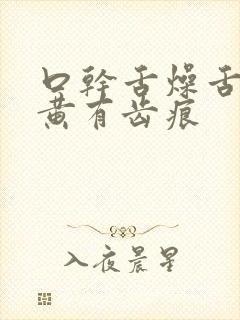 口幹舌燥舌
黄有齿痕
入夜晨星